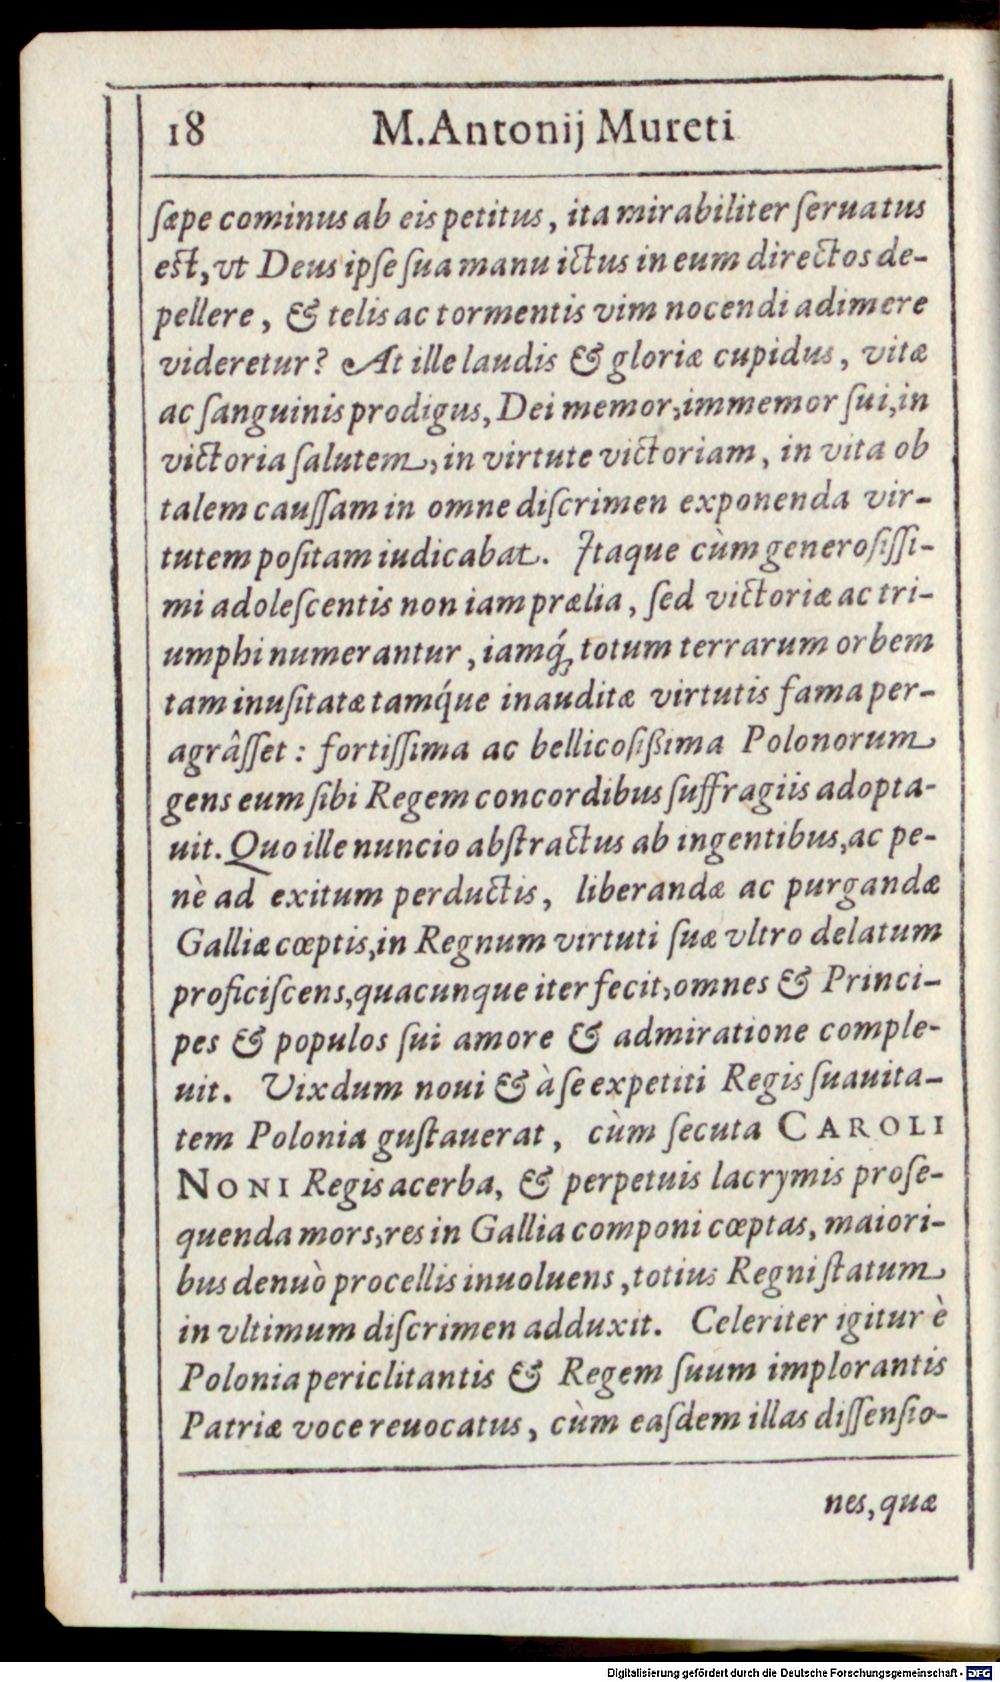 18 M.Antonij Mureti
sæpe cominus ab eis petitus, ita mirabiliter seruatus
est, vt Deus ipse sua manu ictus in eum directos de-
pellere, & telis ac tormentis vim nocendi adimere
videretur? At ille laudis & gloriæ cupidus, vitæ
ac sanguinis prodigus, Dei memor, immemor sui, in
victoria salutem, in virtute victoriam, in vita ob
talem caussam in omne discrimen exponenda vir-
tutem positam iudicabat. Itaque cùm generosissi-
mi adolescentis non iam prælia, sed victoriæ ac tri-
umphi numerantur, iamq́; totum terrarum orbem
tam inusitatæ tamq́ue inauditæ virtutis fama per-
agrâsset: fortissima ac bellicosißima Polonorum
gens eum sibi Regem concordibus suffragiis adopta-
uit. Quo ille nuncio abstractus ab ingentibus, ac pe-
nè ad exitum perductis, liberandæ ac purgandæ
Galliæ cœptis, in Regnum virtuti suæ vltro delatum
proficiscens, quacunque iter fecit, omnes & Princi-
pes & populos sui amore & admiratione comple-
uit. Vixdum noui & à se expetiti Regis suauita-
tem Polonia gustauerat, cùm secuta CAROLI
NONI Regis acerba, & perpetuis lacrymis prose-
quenda mors, res in Gallia componi cœptas, maiori-
bus denuò procellis inuoluens, totius Regni statum
in vltimum discrimen adduxit. Celeriter igitur è
Polonia periclitantis & Regem suum implorantis
Patriæ voce reuocatus, cùm easdem illas dissensio-
nes, quæ
Digitalisierung gefördert durch die Deutsche Forschungsgemeinschaft - DFG